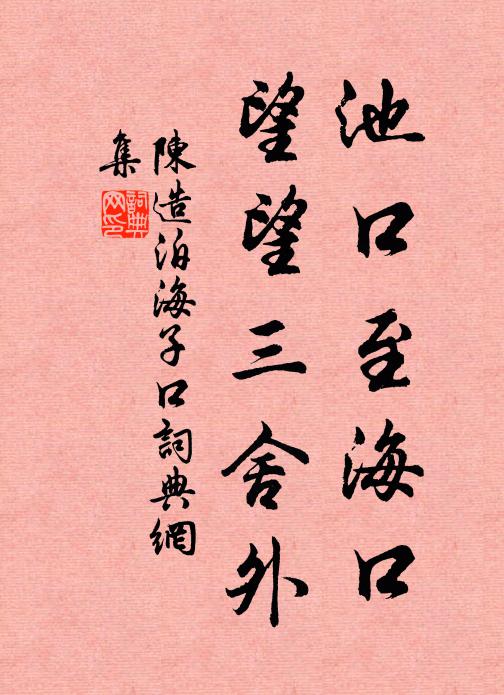 池口至海口
望望三舍外
陳造泊海子口詞典網
集
詞典
网印